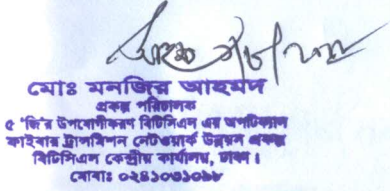 মোঃ মনজির আহমদ
প্রকল্প পরিচালক
৫ 'জি'র উপযোগীকরণে বিটিসিএল এর অপটিক্যাল
ফাইবার ট্রান্সমিশন নেটওয়ার্ক উন্নয়ন প্রকল্প
বিটিসিএল কেন্দ্রীয় কার্যালয়, ঢাকা।